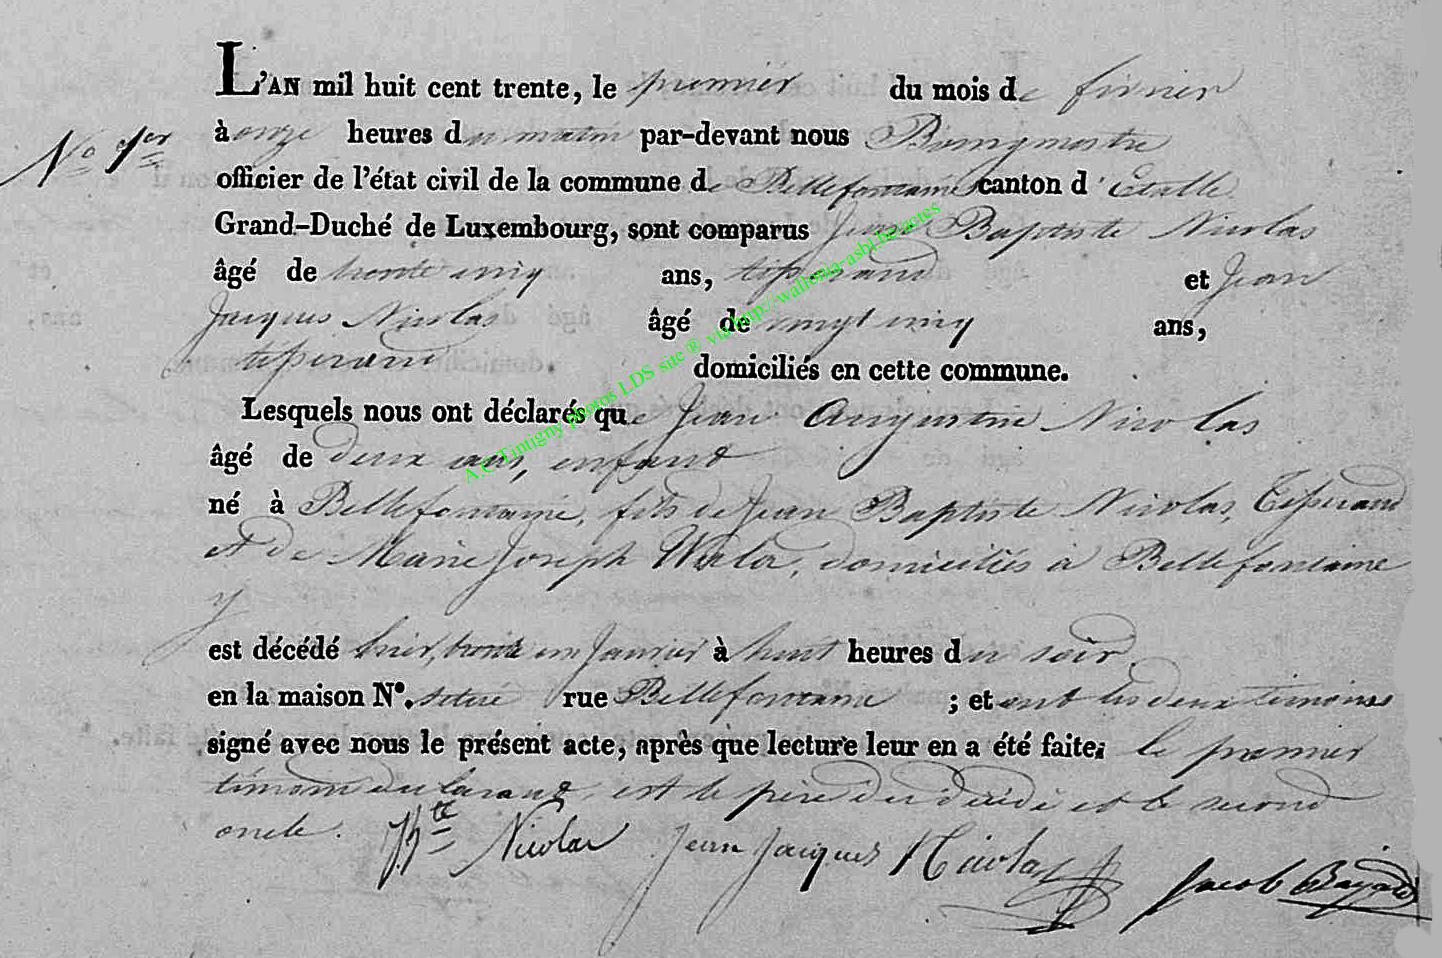 L'AN mil huit cent trente, le premier du mois de février
No 1er
à onze heures du matin par-devant nous Bourgmestre
officier de l'état civil de la commune de Bellefontaine canton d'Etalle
Grand-Duché de Luxembourg, sont comparus Jean Baptiste Nicolas
âgé de trente cinq ans, tisserand et Jean
Jacques Nicolas âgé de vingt cinq ans,
tisserand domiciliés en cette commune.
Lesquels nous ont déclarés que Jean Augustin Nicolas
âgé de deux ans, enfant
né à Bellefontaine, fils de Jean Baptiste Nicolas, Tisserand
et de Marie Joseph domiciliés à Bellefontaine
y
est décédé hier, trente un Janvier à huit heures du soir,
en la maison No. située rue Bellefontaine ; et ont les deux témoins
signé avec nous le présent acte, après que lecture leur en a été faite; le premier
témoin déclarant, est le père du décédé et le second
oncle. J.Bte Nicolas Jean Jacques Nicolas Jacob
A.C Tintigny photos LDS site ® via http://wallonia-asbl.be/actes